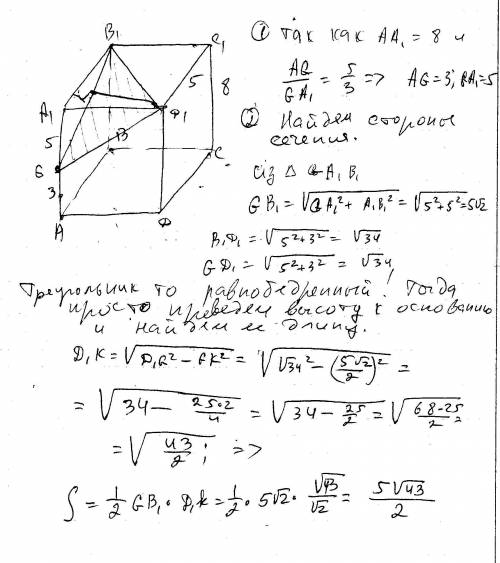 B₁
C₁
A₁
D₁
5
8
5
G
B
C
3
A
D
① Так как AA₁ = 8 и
AG/GA₁ = 5/3 => AG=3; GA₁=5
② Найдем стороны
сечения.
из △ GA₁B₁
GB₁ = √(GA₁² + A₁B₁²) = √(5²+5²) = 5√2
B₁D₁ = √(5²+3²) = √34
GD₁ = √(5²+3²) = √34
Треугольник то равнобедренный! Тогда
просто проведем высоту к основанию
и найдем ее длину.
D₁K = √(D₁G² − GK²) = √(√34² − (5√2/2)²) =
= √(34 − 25·2/4) = √(34 − 25/2) = √((68-25)/2) =
= √(43/2); =>
S = 1/2 GB₁ · D₁K = 1/2 · 5√2 · √43/√2 = 5√43/2